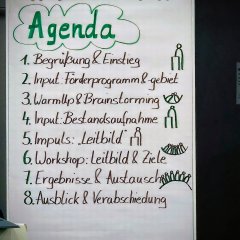 Agenda
1. Begrüßung & Einstieg
2. Input Förderprogramm & -gebiet
3. WarmUp & Brainstorming
4. Input: Bestandsaufnahme
5. Impuls: „Leitbild"
6. Workshop: Leitbild & Ziele
7. Ergebnisse & Austausch
8. Ausblick & Verabschiedung